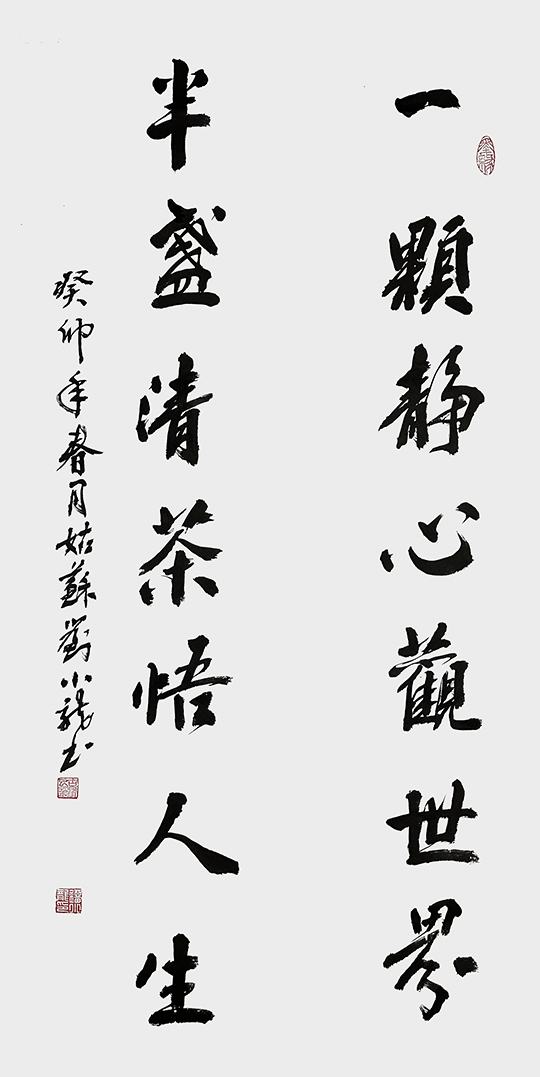 一顆靜心觀世界
半盞清茶悟人生
癸卯年春月姑蘇劉小龍书